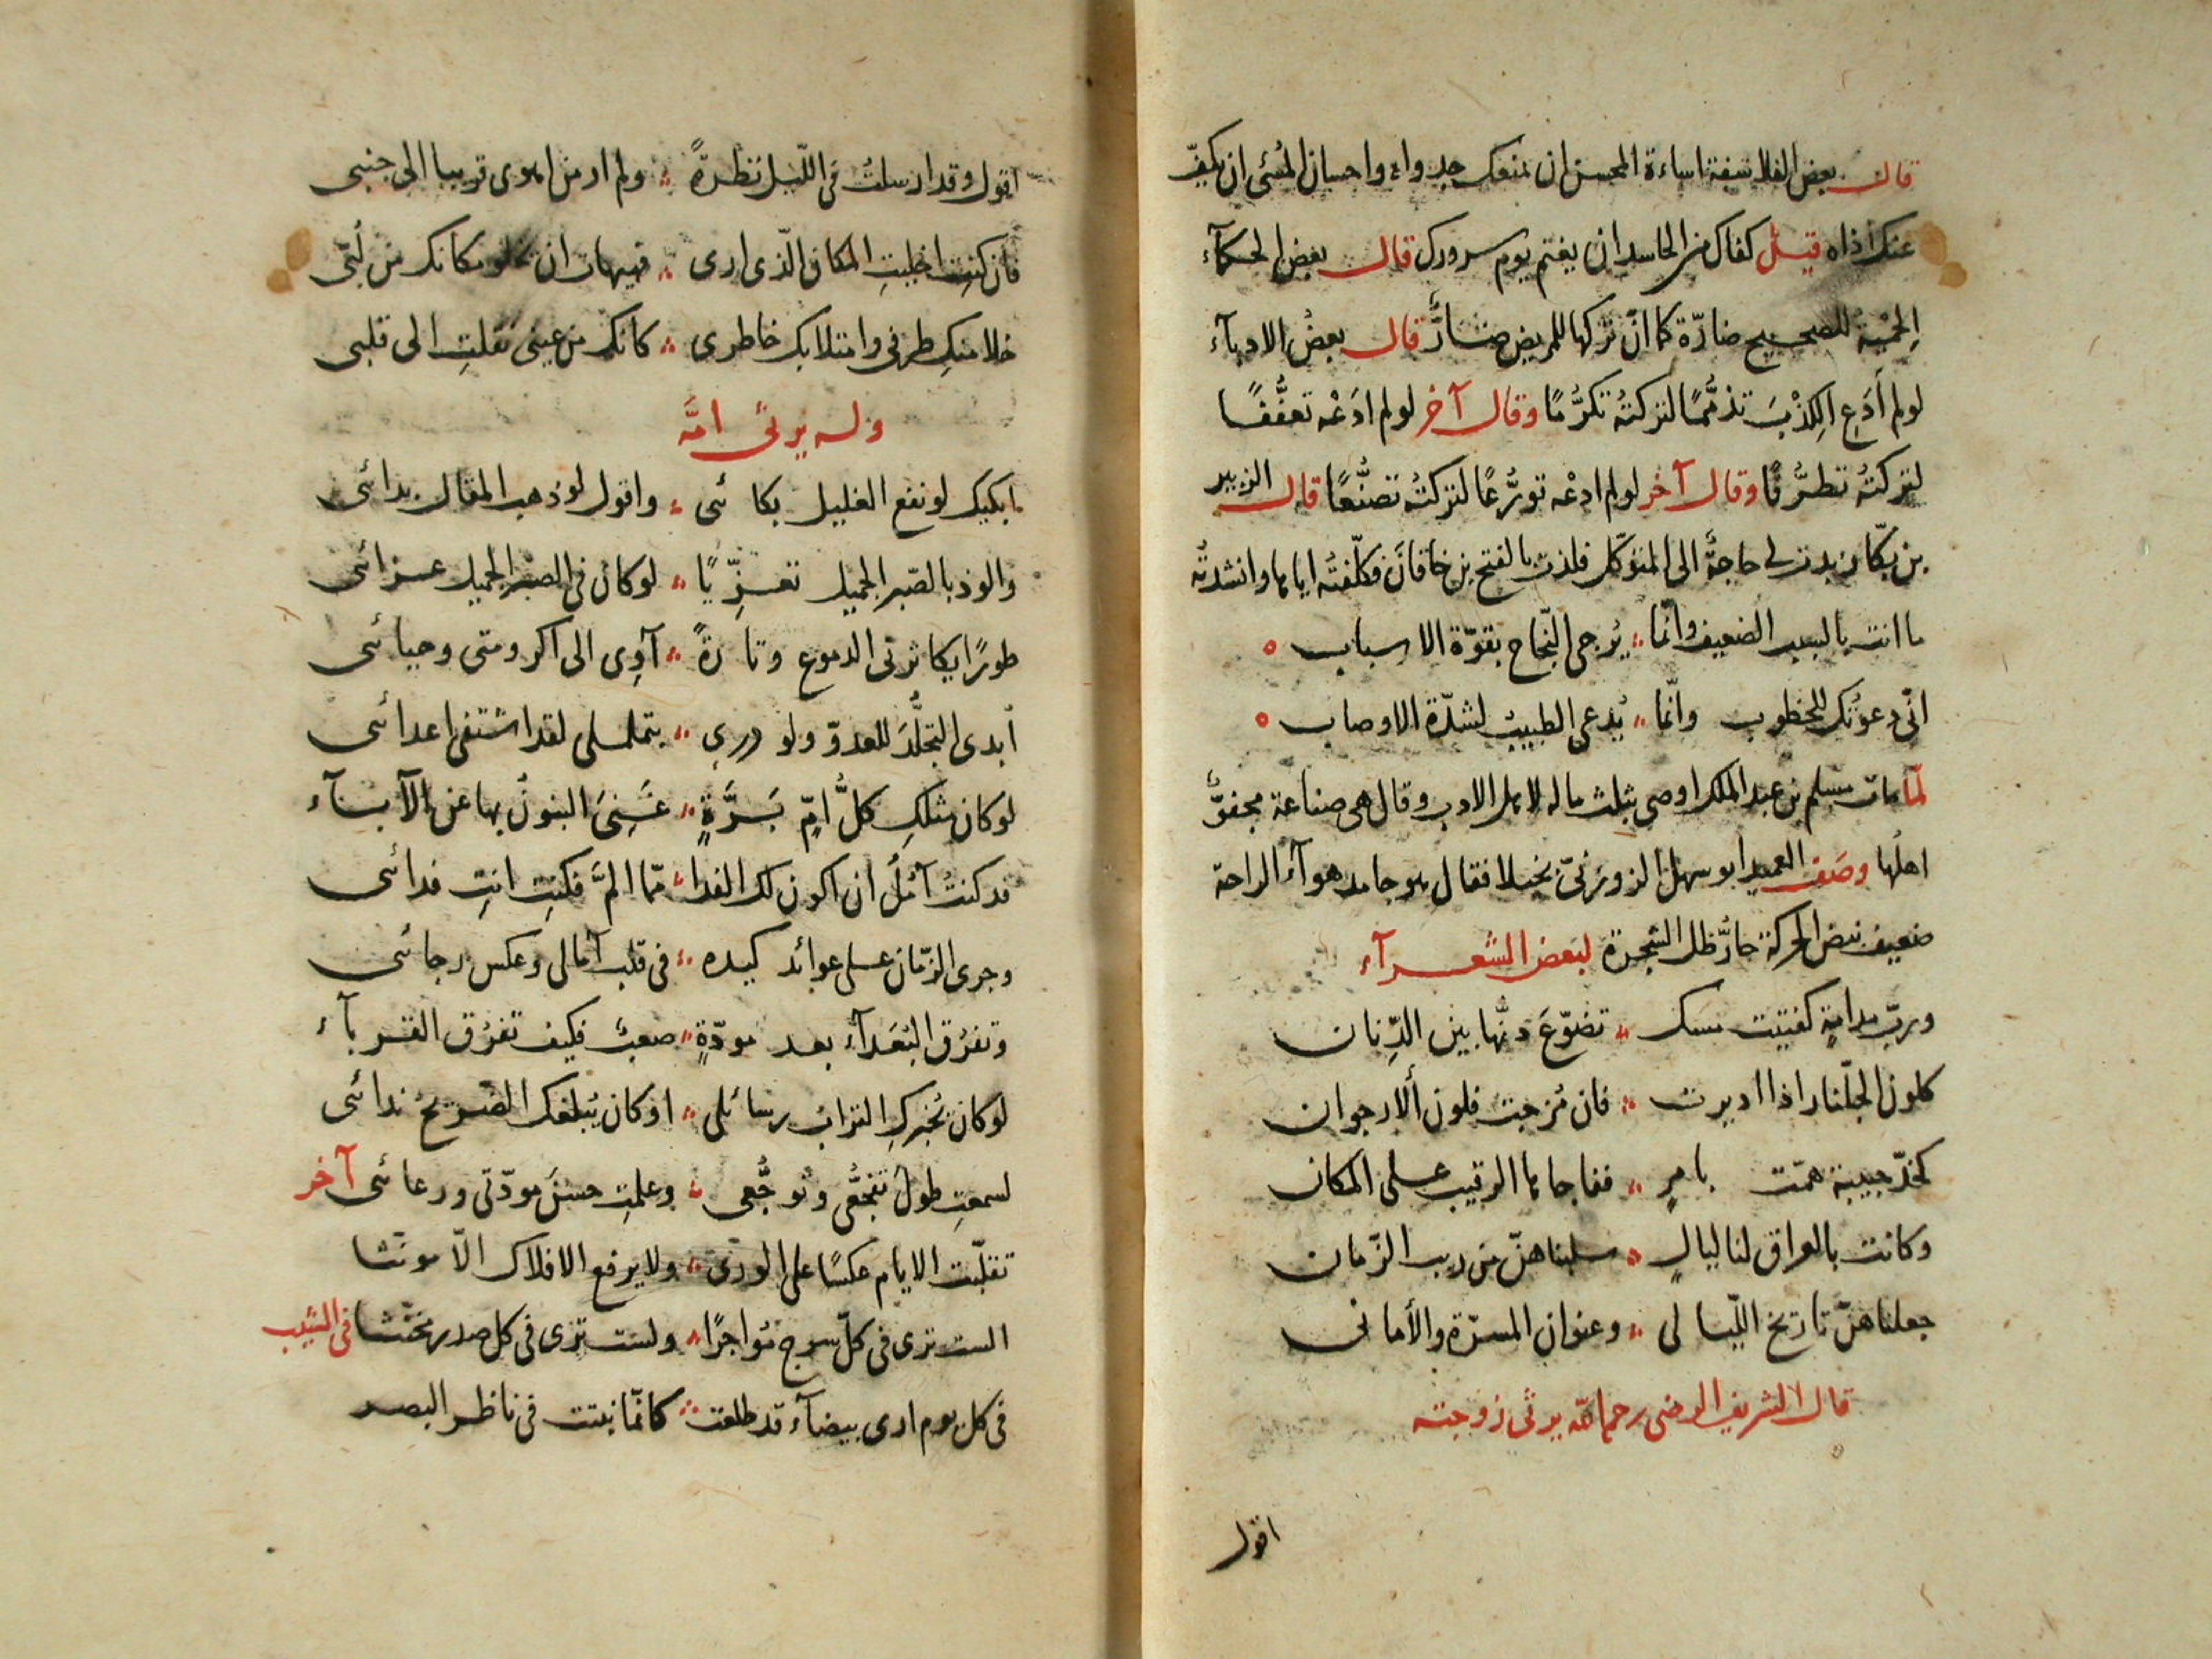 قال بعض الفلاسفة اساءة المحسن ان يمنعك جدواه واحسان المسئ ان يكفّ
عنك اذاه قيل كفاك من الحاسد ان يغتم يوم سرورك قال بعض الحكمآء
الحِمْية للصحيح ضارّة كما انّ تركها للمريض ضارٌّ قال بعضُ الادبآء
لو لم أَدَعِ الكِذْبَ تذمُّمًا لتركتُه تكرُّمًا وقال آخر لو لم ادَعْه تعفُّفًا
لتركتُه تظرُّفًا وقال آخر لو لم ادعْه تورُّعًا لتركتُه تصنُّعًا قال الزبير
بن بكّار بدت لى حاجةٌ الى المتوكّل فلذت بالفتح بن خاقان فكلّفتُه اياها وانشدتُه
ما انت بالسبب الضعيف وانّما ؞ يُرجى النّجاح بقوّة الاسباب
انّى دعوتُك للخطوب وانّما ؞ يُدعى الطبيبُ لشدّة الاوصاب
لمّا مات مسلم بن عبد الملك اوصى بثلث ماله لاهل الادب وقال هى صناعة مجفوٌّ
اهلُها وصَف العميد ابو سهل الزوزنىّ بخيلا فقال هو جامد هوآء الراحة
ضعيف نبض الحركة حارُّ ظل الشجرة لبعض الشعرآء
وربّ مدامةٍ كفتيت مسك ؞ تضوّعَ دنّها بين الدِّنان
كلون الجلّنار اذا اديرت ؞ فان مُزجت فلون ألارجوان
كخدّ حبيبة همّت بامرٍ ؞ ففاجاها الرقيب على المكان
وكانت بالعراق لنا ليالٍ ؞ سلبناهنّ من ريب الزّمان
جعلناهنّ تاريخ اللّيالى ؞ وعنوان المسرّة والأمانى
قال الشريف الرضى رحمه الله يرثى زوجته
اقول
اقول وقد ارسلتُ فى اللّيل نظرةً ؞ ولم ار من اهوى قريبا الى جنبى
فان كنتِ اخليتِ المكان الّذى ارى ؞ فهيهات ان يخلو مكانك من لُبّى
خلا منكِ طرفى وامتلا بك خاطرى ؞ كانك من عينى نقلتِ الى قلبى
وله يرثى امّه
ابكيك لو نفع الغليل بكائى ؞ واقول لو ذهب المقال بدائى
والوذ بالصّبر الجميل تعزِّيًا ؞ لو كان فى الصبر الجميل عزائى
طورًا يكاثرنى الدموع وتارةً ؞ آوِى الى اكرومتى وحيائى
أبدى التجلُّدَ للعدوّ ولو درى ؞ بتململى لقد اشتفى اعدائى
لو كان مثلكِ كلُّ امّ بَرَّةٍ ؞ غَنِىَ البنونُ بها عن الآبآء
قد كنتُ آمُلُ ان اكون لك الفدا ؞ ممّا المَّ فكنتِ انتِ فدائى
وجرى الزّمان على عوائد كيده ؞ فى قلب آمالى وعكس رجائى
وتفرُق البُعَدآء بعد مودّةٍ ؞ صعبٌ فكيف تفرُق القربآء
لو كان يُخبركِ الترابُ رسائلى ؞ او كان يُبلغك الضريحُ ندائى
لسمعتِ طولَ تفجُّعى وتوجُّعى ؞ وعلمتِ حسنَ مودّتى ورعائى آخر
تقلّبت الايام عكسًا على الورى ؞ ولا يرفع الافلاك الّا مونثا
الست ترى فى كلّ سرج مُواجرًا ؞ ولست ترى فى كل صدر مخنّثا فى الشيب
فى كل يوم ارى بيضآء قد طلعت ؞ كانّما نبتت فى ناظر البصر